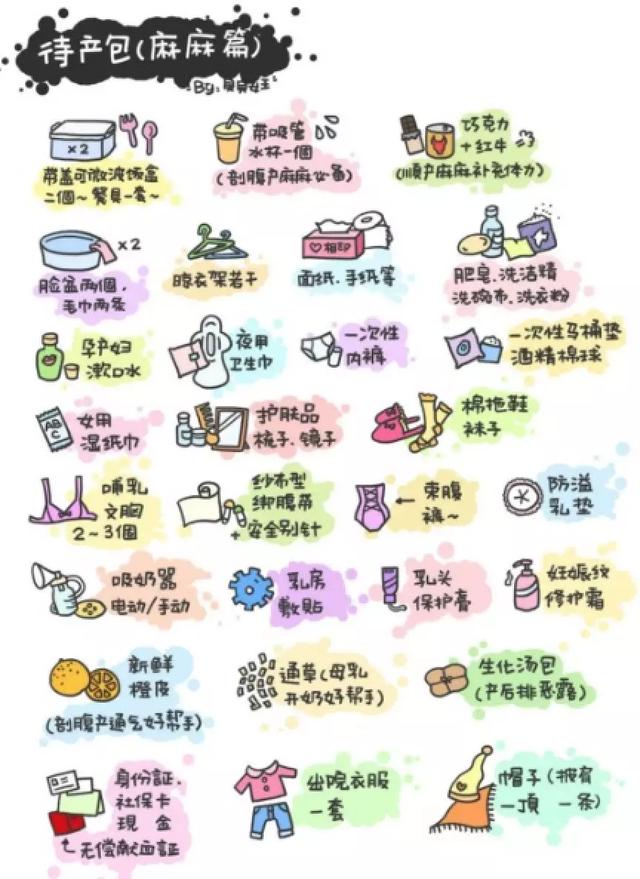 待产包(麻麻篇)
By:贝贝娃
×2
带盖可微波饭盒
二個~餐具一套~
带吸管
水杯一個
(剖腹产麻麻必备)
巧克力
+红牛
(順产麻麻补充体力)
×2
脸盆两個,
毛巾两条
晾衣架若干
相印
面纸.手纸等
肥皂.洗洁精
洗碗布.洗衣粉
孕产妇
漱口水
夜用
卫生巾
一次性
内裤
一次性马桶垫
酒精棉球
ABC
女用
湿纸巾
护肤品
梳子.镜子
棉拖鞋
袜子
哺乳
文胸
2~3個
纱布型
绑腹带
+安全别针
束腹
裤~
防溢
乳垫
吸奶器
电动/手动
乳房
敷贴
乳头
保护膏
妊娠纹
修护霜
新鲜
橙皮
(剖腹产通气好帮手)
通草(母乳
开奶好帮手)
生化汤包
(产后排恶露)
身份証.
社保卡
現 金
无偿献血証
出院衣服
一套
帽子(披肩
一頂 一条)